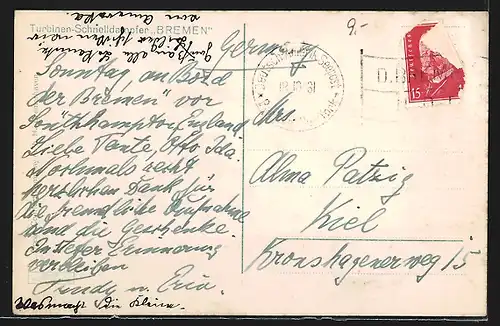 Turbinen-Schnelldampfer "BREMEN"
9.-
Germany
Sonntag, an Bord
der Bremen" vor
Southhampton, England
Liebe Tante, Otto, Ida.
Nochmals recht
herzlichen Dank für
die freundliche Aufnahme
und die Geschenke.
In steter Erinnerung
verbleiben
Trude u. Eria.
Was macht die Kleine.
15
Mrs.
Alma Patzig
Kiel
Kronshagenerweg 15